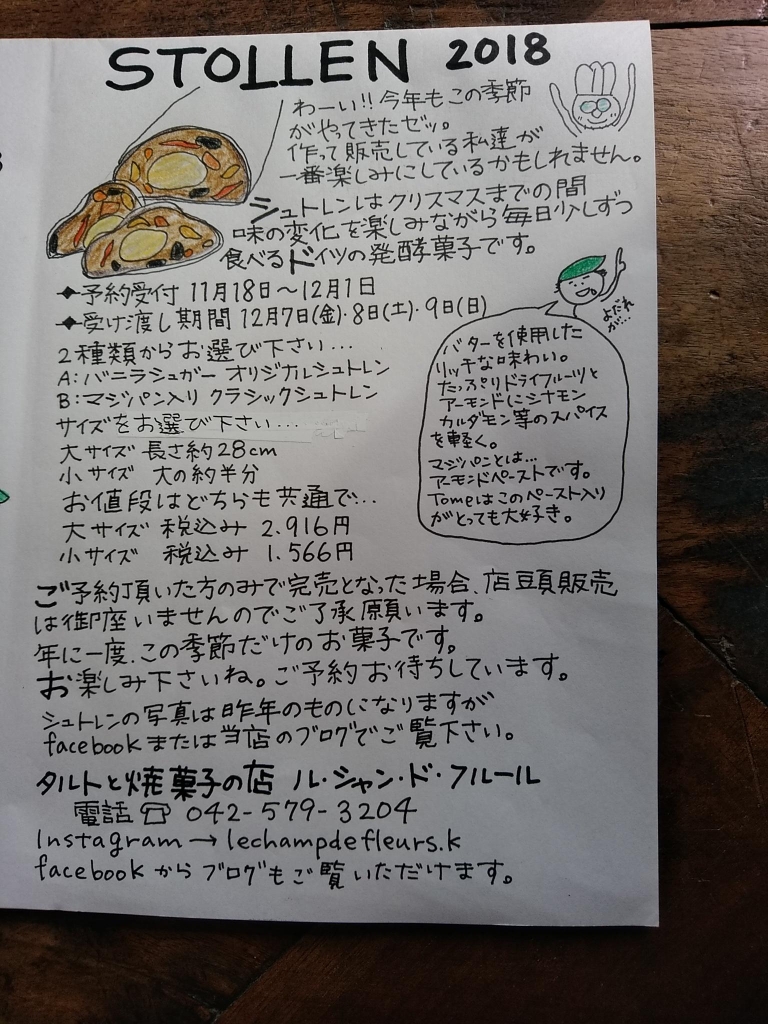 STOLLEN 2018
わーい!!今年もこの季節
がやってきたゼッ。
作って販売している私達が
一番楽しみにしているかもしれません。
シュトレンはクリスマスまでの間
味の変化を楽しみながら毎日少しずつ
食べるドイツの発酵菓子です。
◆予約受付 11月18日〜12月1日
◆受け渡し期間 12月7日(金)・8日(土)・9日(日)
よだれが…
2種類からお選び下さい…
A:バニラシュガー オリジナルシュトレン
B:マジパン入り クラシックシュトレン
サイズをお選び下さい…
大サイズ 長さ約28cm
小サイズ 大の約半分
お値段はどちらも共通で…
大サイズ 税込み 2.916円
小サイズ 税込み 1.566円
バターを使用した
リッチな味わい。
たっぷりドライフルーツと
アーモンドにシナモン
カルダモン等のスパイス
を軽く。
マジパンとは…
アーモンドペーストです。
Tomeはこのペースト入り
がとっても大好き。
ご予約頂いた方のみで完売となった場合、店頭販売
は御座いませんのでご了承願います。
年に一度、この季節だけのお菓子です。
お楽しみ下さいね。ご予約お待ちしています。
シュトレンの写真は昨年のものになりますが
facebookまたは当店のブログでご覧下さい。
タルトと焼菓子の店 ル・シャン・ド・フルール
電話☎ 042-579-3204
Instagram→lechampdefleurs.k
facebookからブログもご覧いただけます。